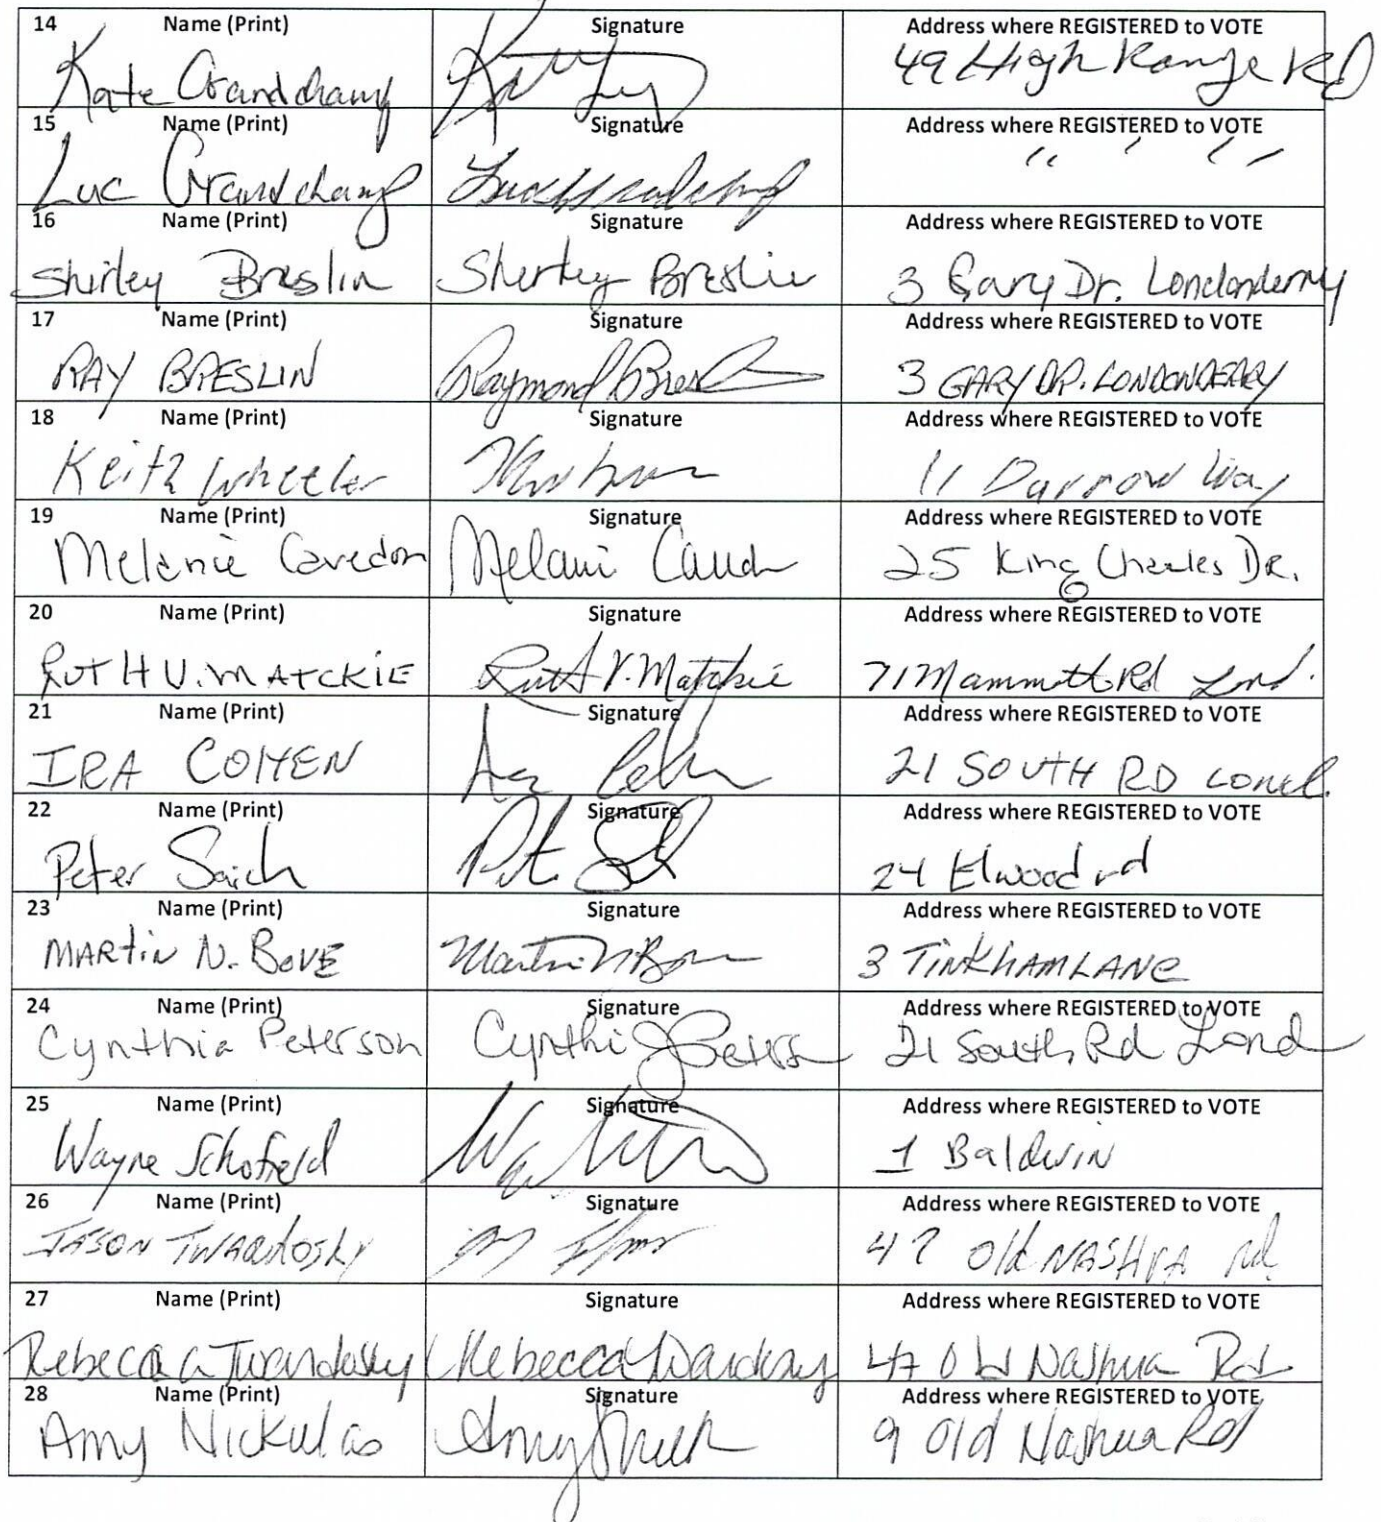 14 Name (Print) Signature Address where REGISTERED to VOTE
Kate Grandchamp 49 High Range Rd
15 Name (Print) Signature Address where REGISTERED to VOTE
Luc Grandchamp " " "
16 Name (Print) Signature Address where REGISTERED to VOTE
Shirley Breslin Shirley Breslin 3 Gary Dr. Londonderry
17 Name (Print) Signature Address where REGISTERED to VOTE
RAY BRESLIN Raymond Bres 3 GARY DR. LONDONDERRY
18 Name (Print) Signature Address where REGISTERED to VOTE
Keith Wheeler 11 Darrow Way
19 Name (Print) Signature Address where REGISTERED to VOTE
Melanie Cavedon Melani 25 King Charles DR.
20 Name (Print) Signature Address where REGISTERED to VOTE
RUTH V. MATCKIE Ruth V. Matckie 71 Mammoth Rd Lond.
21 Name (Print) Signature Address where REGISTERED to VOTE
IRA COHEN 21 SOUTH RD Lond.
22 Name (Print) Signature Address where REGISTERED to VOTE
Peter Saich 24 Elwood rd
23 Name (Print) Signature Address where REGISTERED to VOTE
MARTiN N. BOVE Martin N Bove 3 TINKHAM LANE
24 Name (Print) Signature Address where REGISTERED to VOTE
Cynthia Peterson 21 South Rd Lond
25 Name (Print) Signature Address where REGISTERED to VOTE
Wayne Schofield 1 Baldwin
26 Name (Print) Signature Address where REGISTERED to VOTE
JASON TWARdOSKY 47 Old NASHUA Rd
27 Name (Print) Signature Address where REGISTERED to VOTE
Rebecca Twardosky Rebecca Twardosky 47 Old Nashua Rd
28 Name (Print) Signature Address where REGISTERED to VOTE
Amy Nickulas Amy 9 Old Nashua Rd